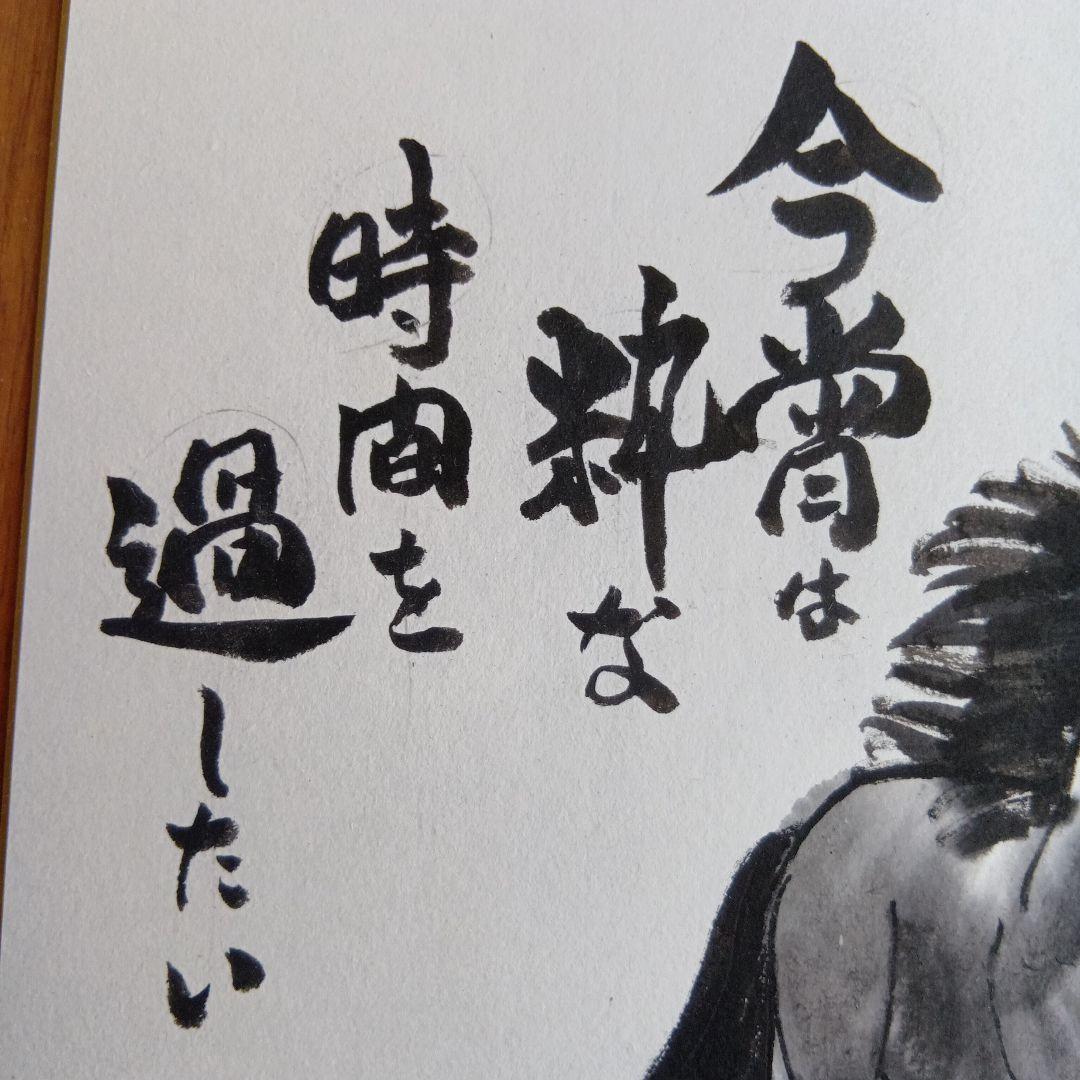 今宵は
粋な
時間を
過したい